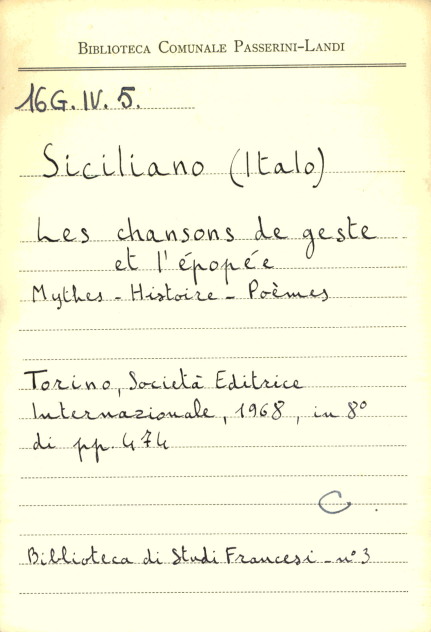 BIBLIOTECA COMUNALE PASSERINI-LANDI
16G. IV. 5.
Siciliano (Italo)
Les chansons de geste
et l'épopée
Mythes - Histoire - Poèmes
Torino, Società Editrice
Internazionale, 1968, in 8°
di pp. 474
C
Biblioteca di Studi Francesi - n° 3